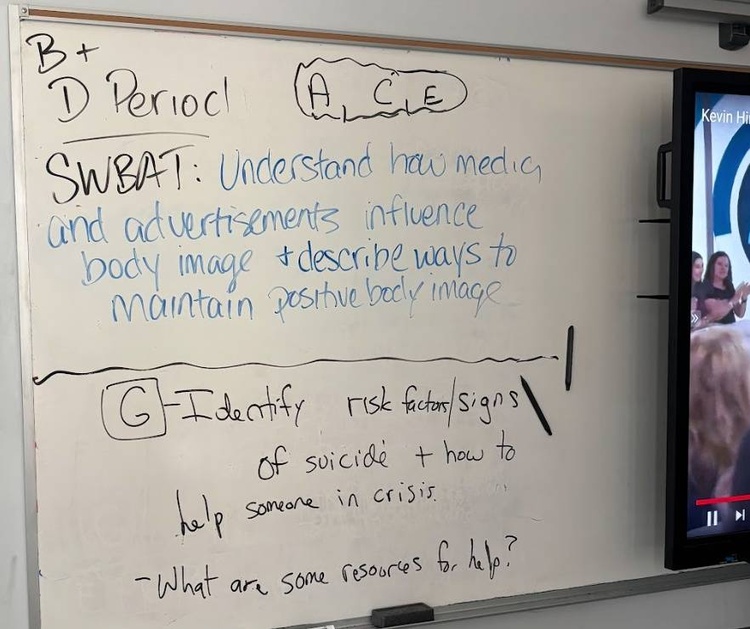 B +
D Period
A, C, E
SWBAT: Understand how media
and advertisements influence
body image + describe ways to
maintain positive body image
G - Identify risk factors/signs
of suicide + how to
help someone in crisis.
- What are some resources for help?
Kevin Hi